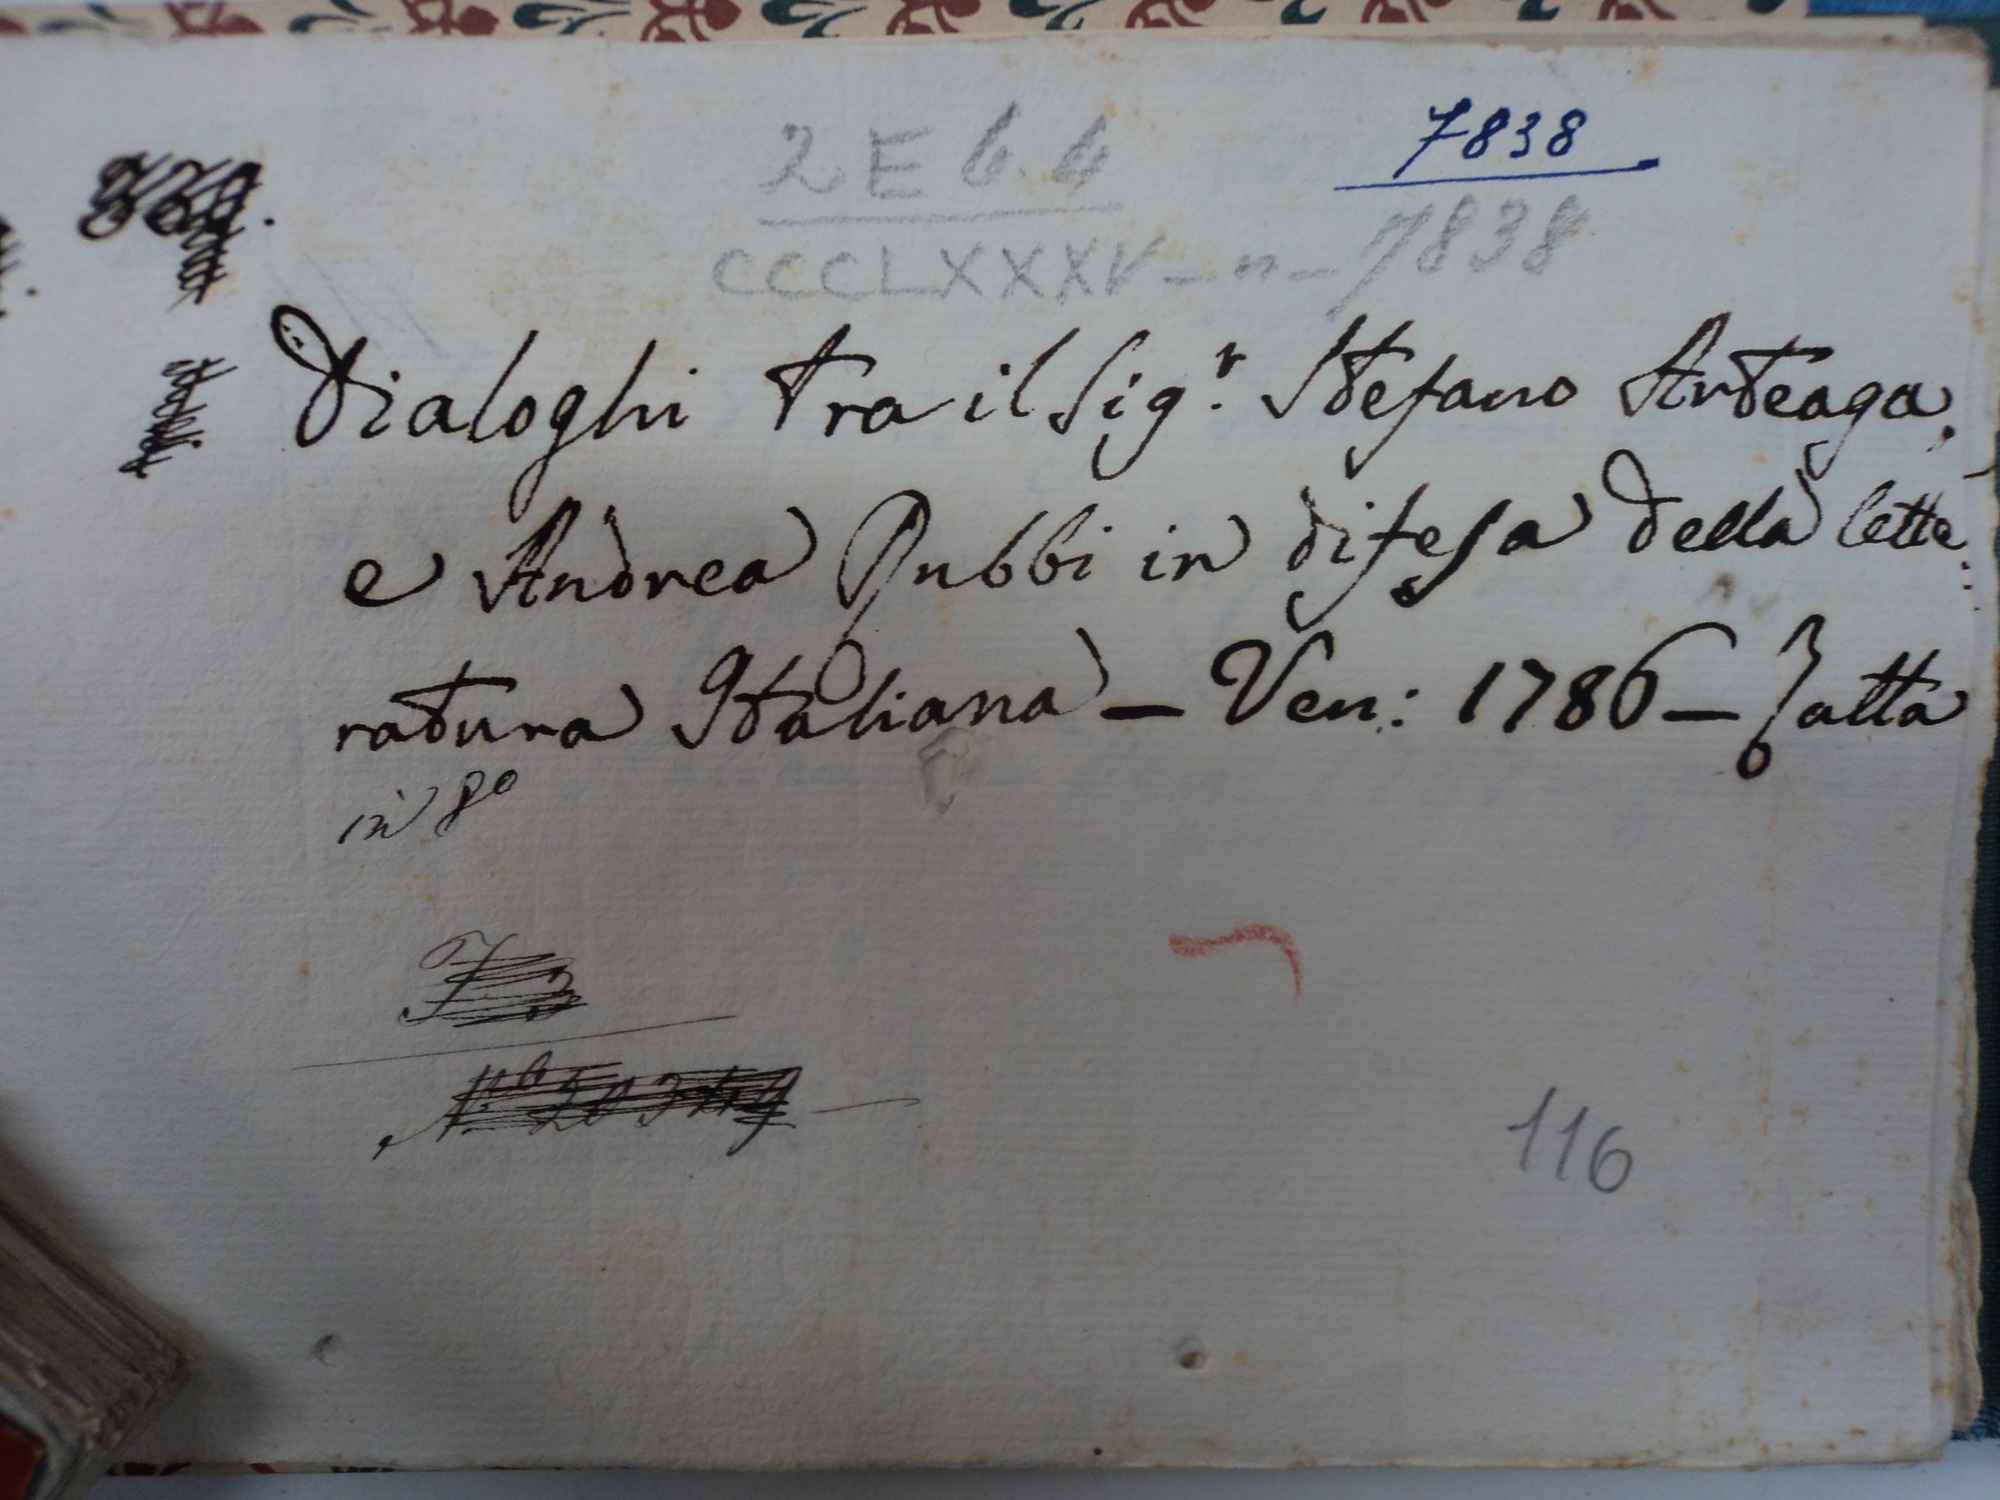 7838
2 E 6. 4
CCCLXXXV - n - 7838
Dialoghi tra il Sig.r Stefano Arteaga,
e Andrea Rubbi in difesa della lette:
ratura Italiana - Ven: 1786 - Zatta
in 8o
116